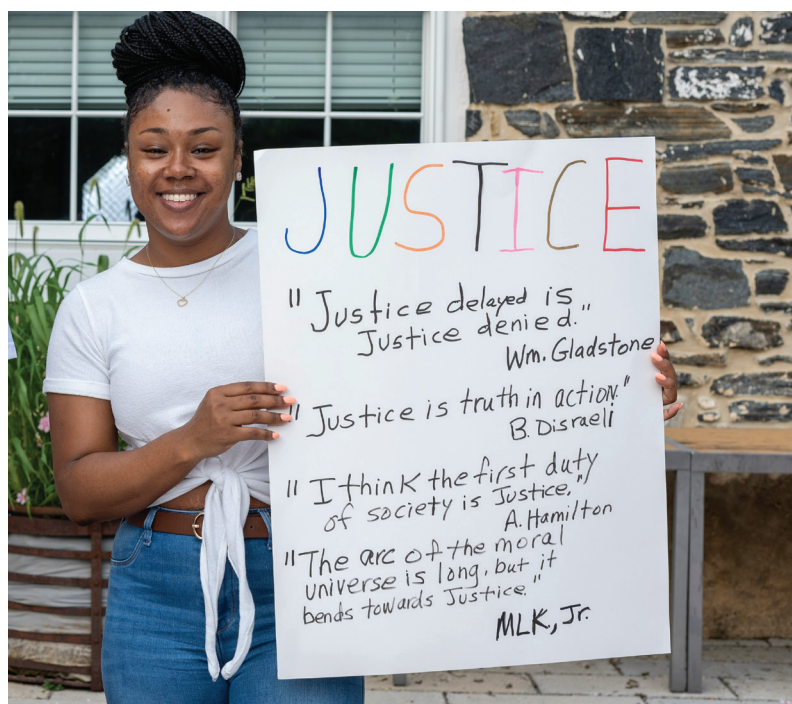 JUSTICE
"Justice delayed is
Justice denied."
Wm. Gladstone
"Justice is truth in action."
B. Disraeli
"I think the first duty
of society is Justice."
A. Hamilton
"The arc of the moral
universe is long, but it
bends towards Justice."
MLK, Jr.